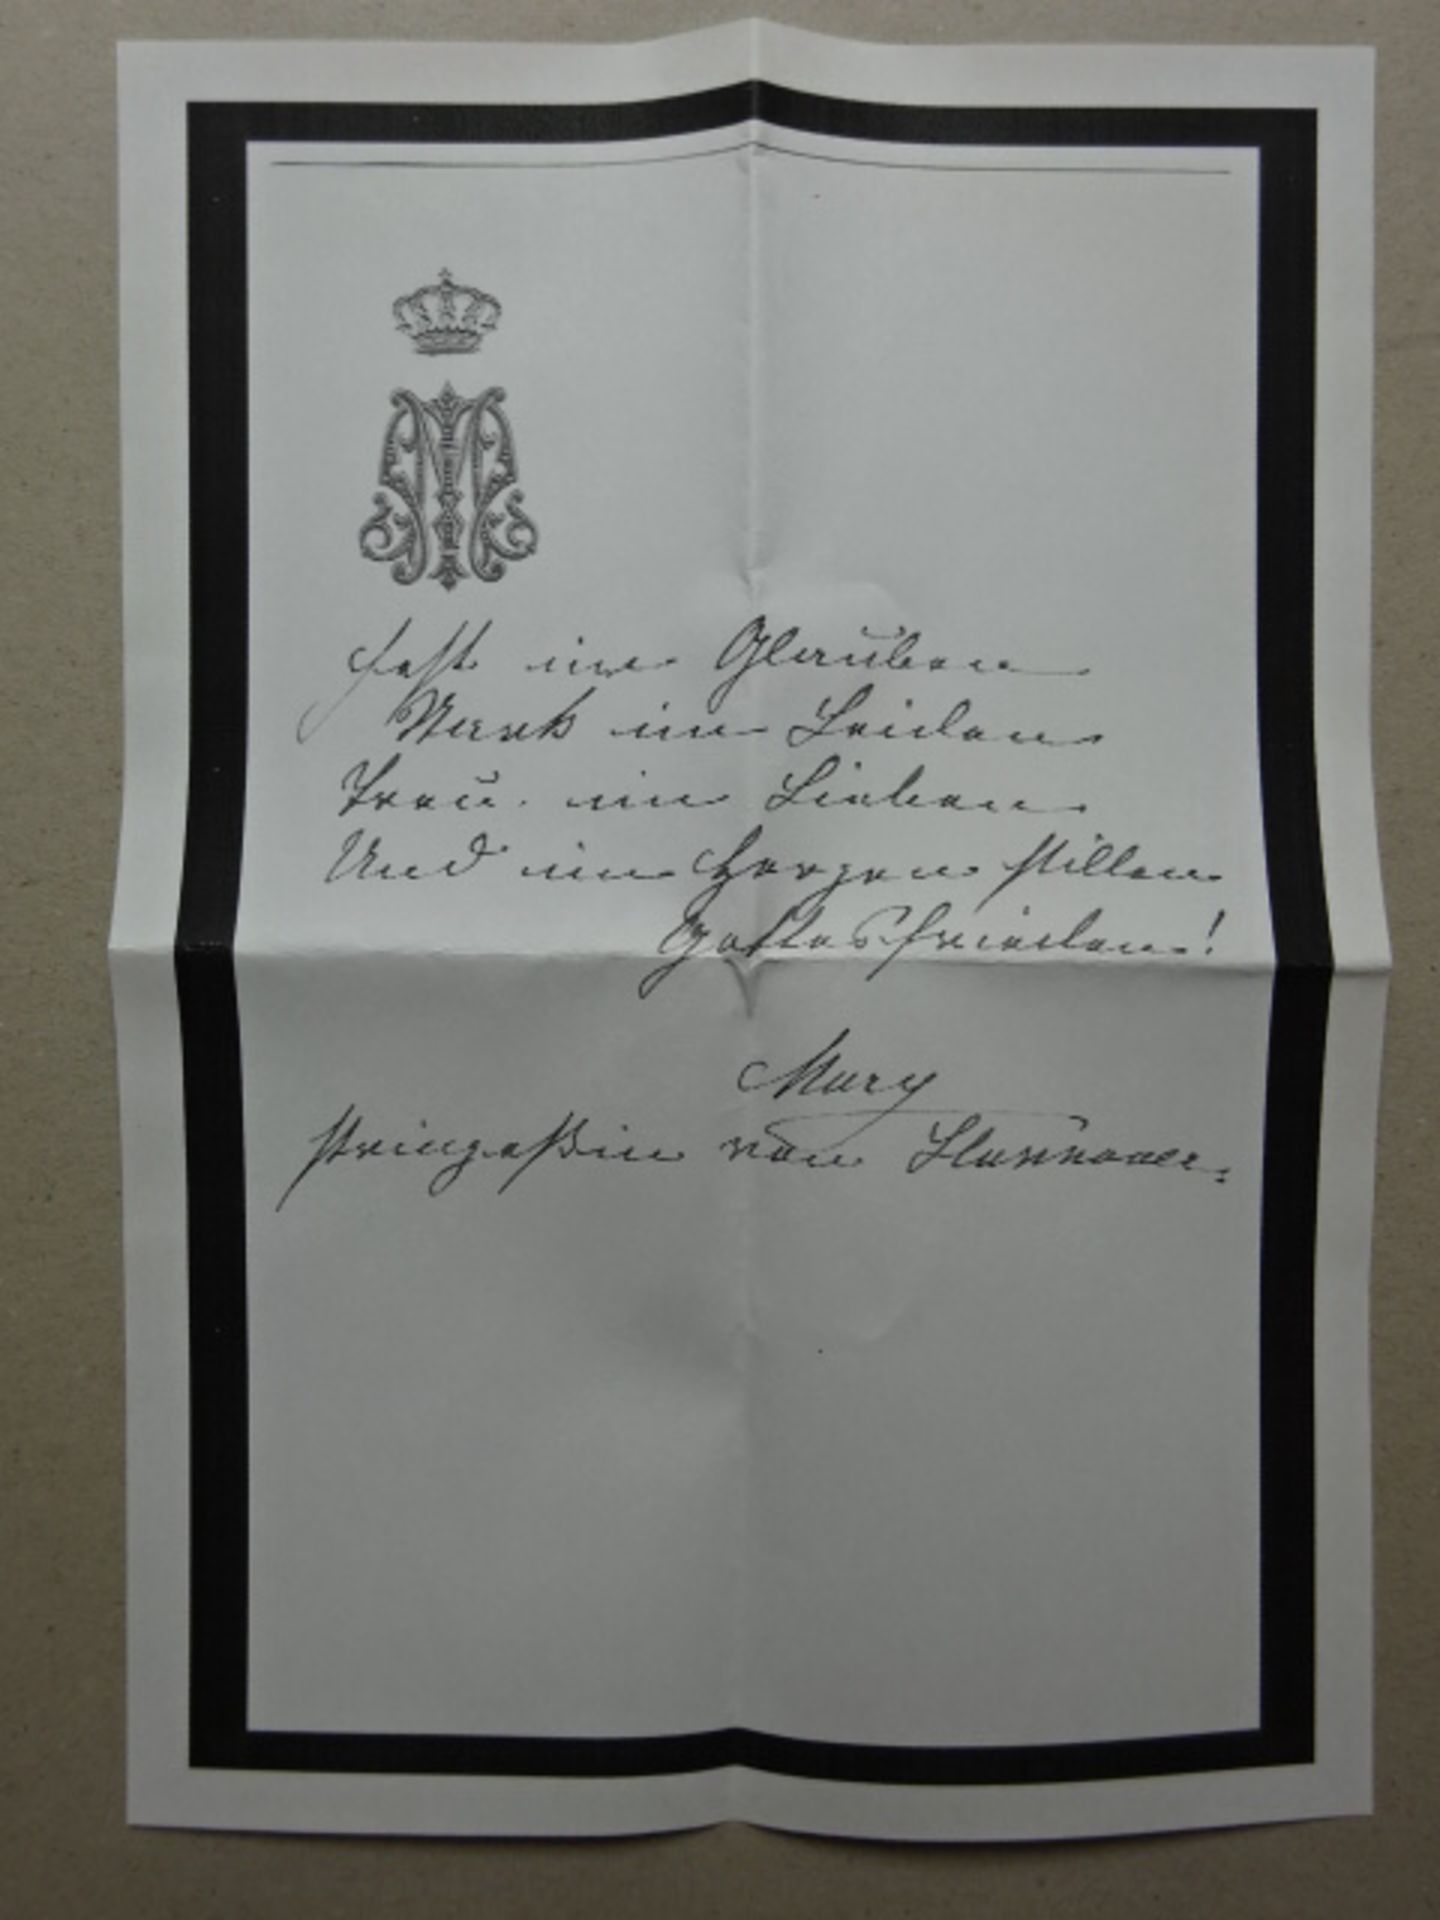 Fest im Glauben
Stark im Leiden
Treu im Lieben
Und im Herzen stillen
Gottesfrieden!
Mary
Prinzeßin von Hannover.